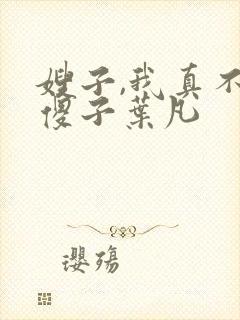 嫂子,我真不
傻子葉凡
瓔殤